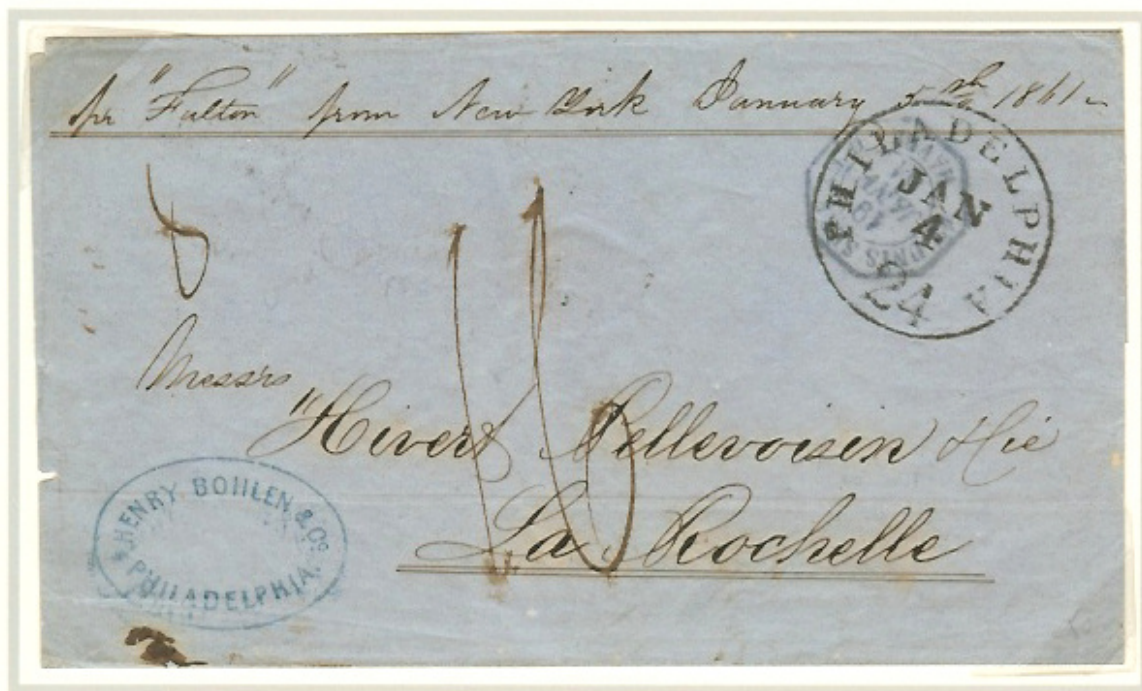 pr "Fulton" from New York January 5th 1861
PHILADELPHIA
JAN
4
24
8
16
Messrs
Hivert Pellevoisin & Cie
La Rochelle
HENRY BOHLEN & Co.
PHILADELPHIA.